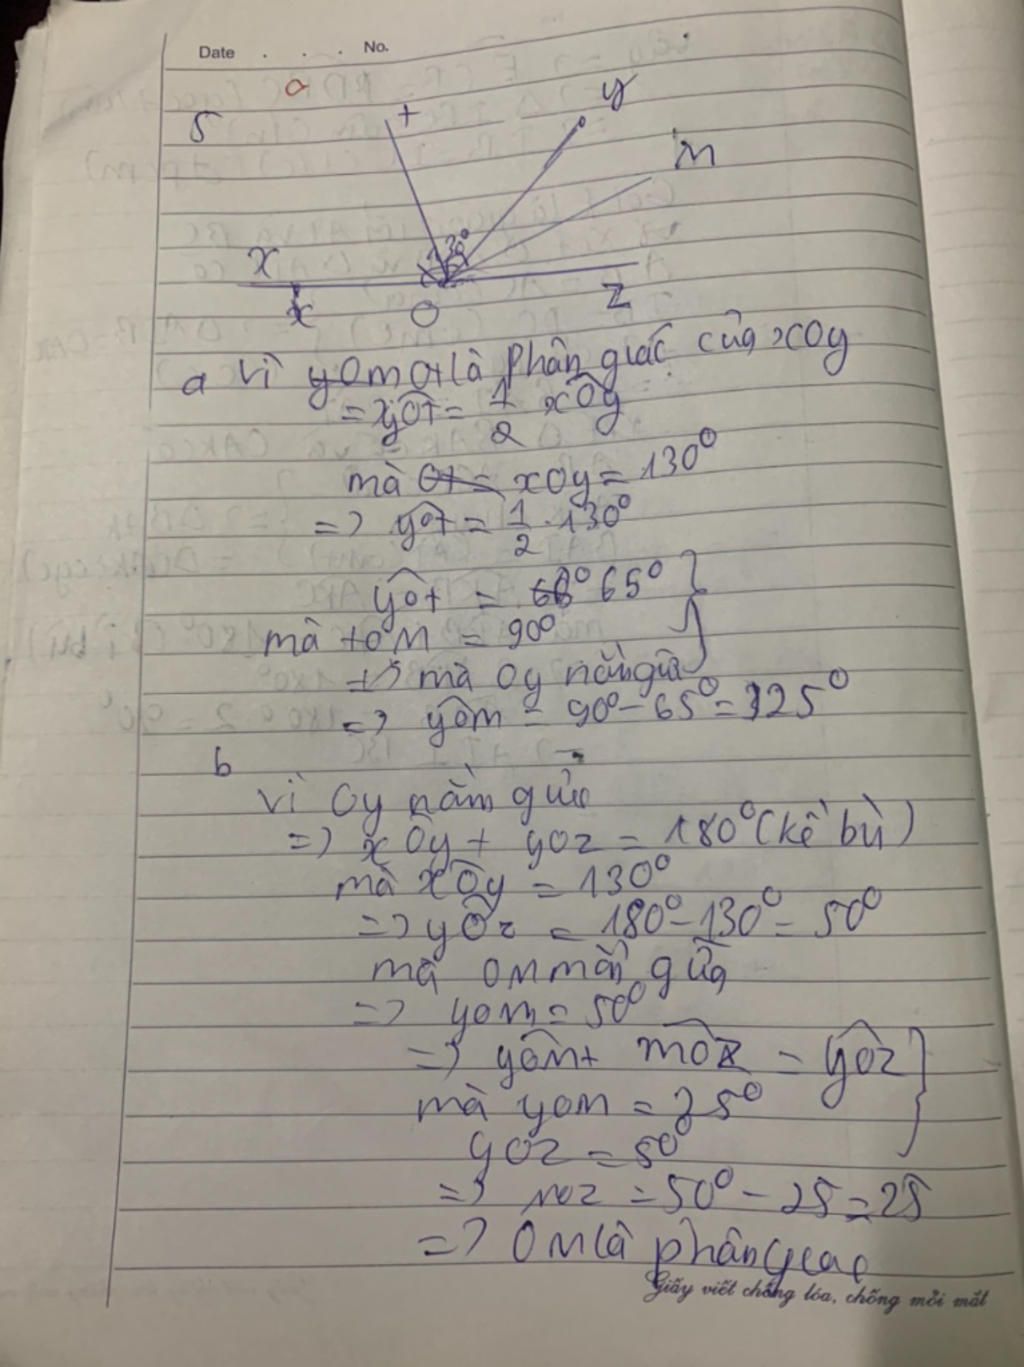 Date . . . No.
a
5
t
y
m
130°
x
x
O
z
a Vì yOm Ot là phân giác của xOy
= yOt = 1/2 xOy
mà Ot = xOy = 130°
=> yOt = 1/2 . 130°
yOt = 65° }
mà tOM = 90°
=> mà Oy nằm giữa
=> yOm = 90° - 65° = 25°
b
Vì Oy nằm giữa
=> xOy + yOz = 180° (kề bù)
mà xOy = 130°
=> yOz = 180° - 130° = 50°
mà OM nằm giữa
=> yOm = 50°
=> yOm + mOz = yOz }
mà yOm = 25°
yOz = 50°
=> mOz = 50° - 25 = 25
=> OM là phân giác
Giấy viết chống lóa, chống mỏi mắt